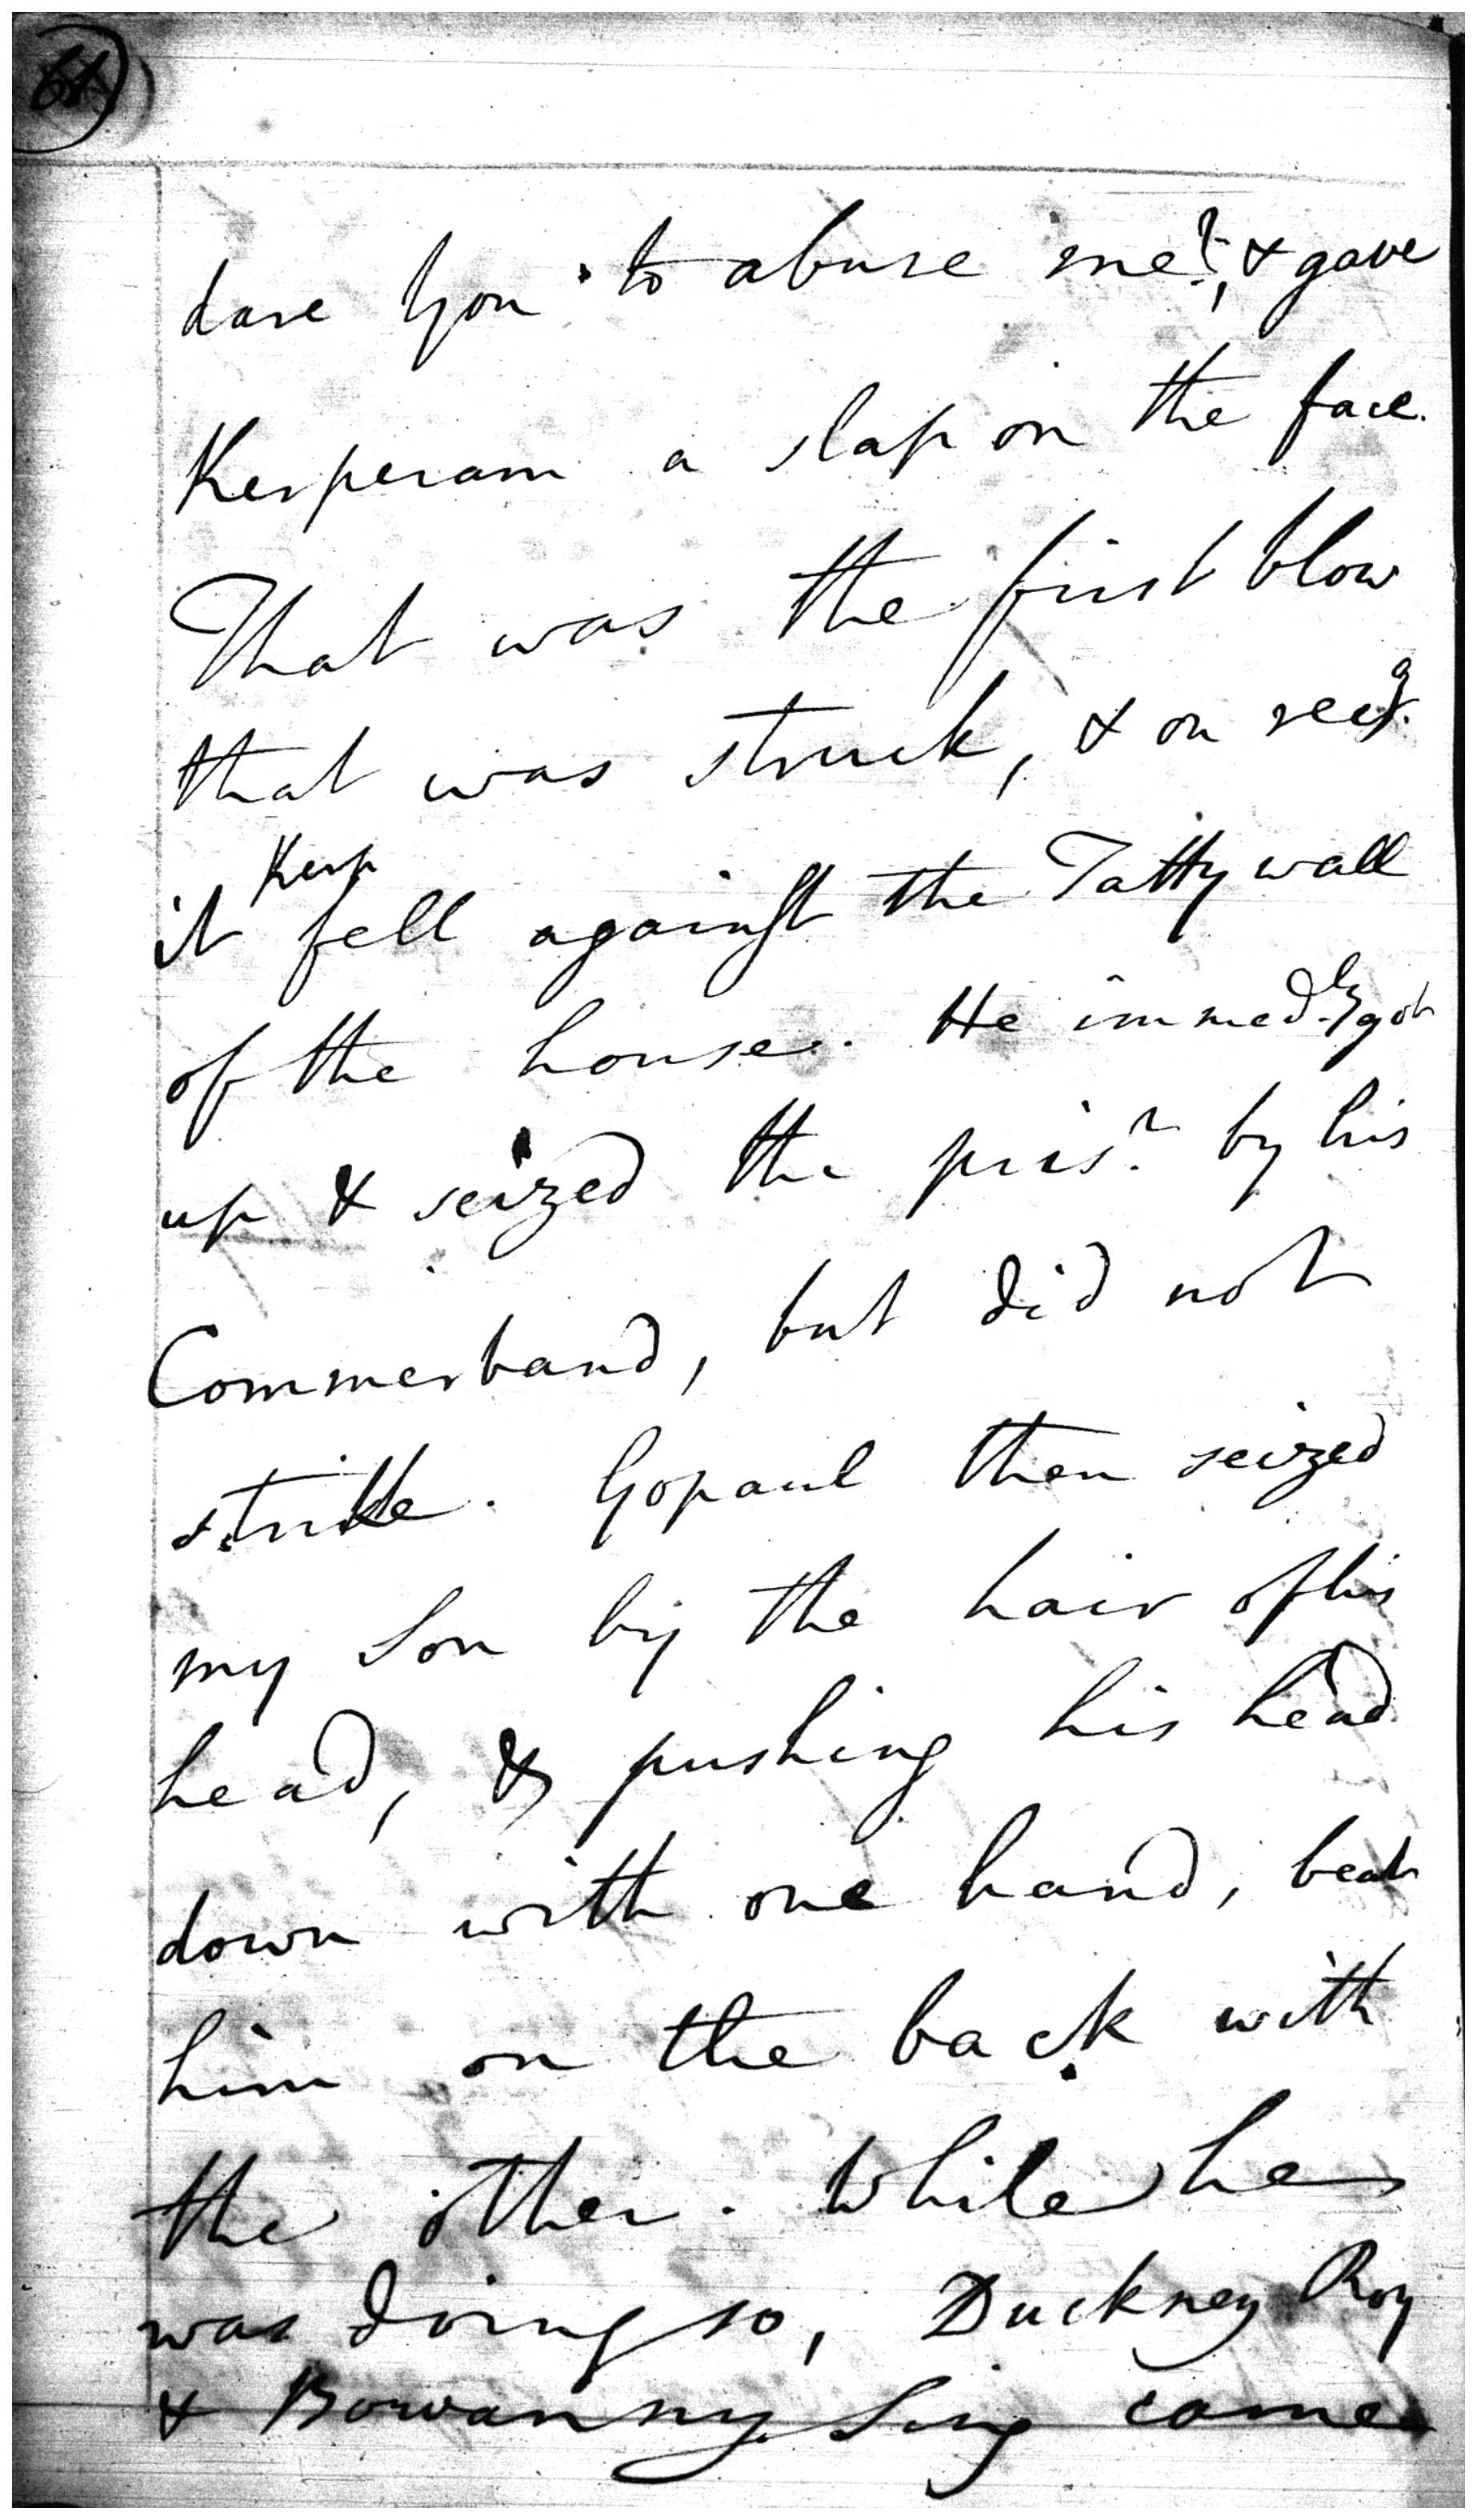 dare you to abuse me?, & gave
Kerperam a slap on the face.
That was the first blow
that was struck, & on recg.
it Kerp fell against the Tatty wall
of the house. He immedly got
up & seized the prisr. by his
Commerband, but did not
strike. Gopaul then seized
my son by the hair of his
head, & pushing his head
down with one hand, beat
him on the back with
the other. While he
was doing so, Duckney Roy
& Bowanny Sing came